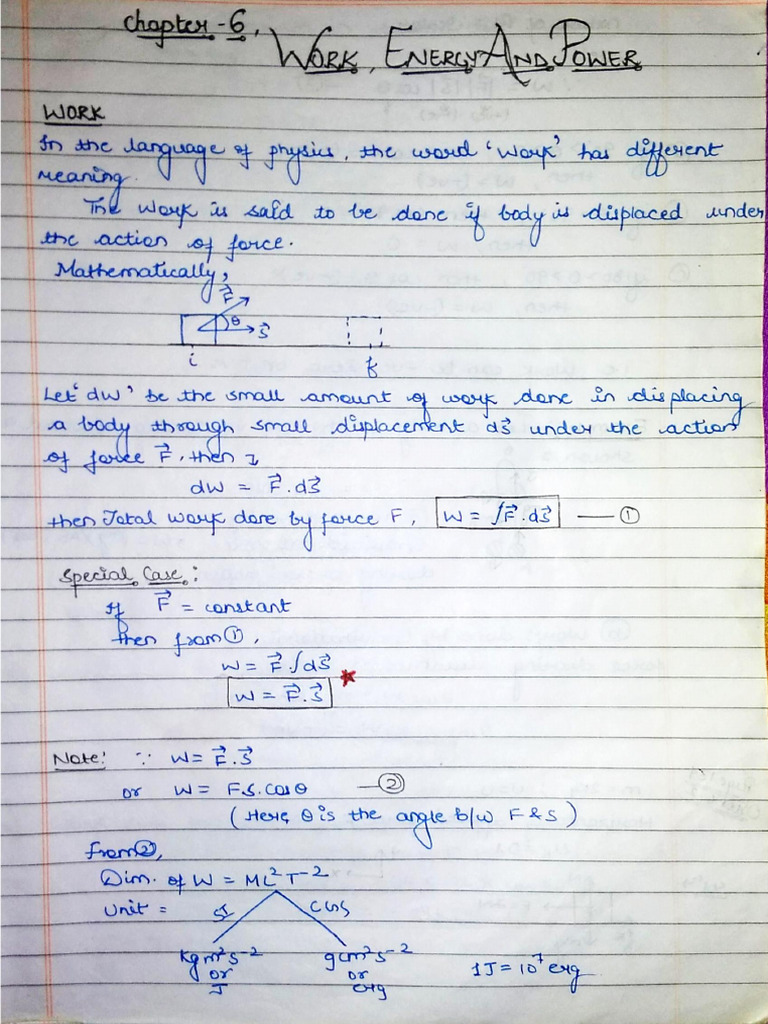 Chapter-6,
WORK, ENERGY AND POWER
WORK
In the language of physics, the word 'Work' has different
meaning.
The Work is said to be done if body is displaced under
the action of force.
Mathematically,
F⃗
θ
S⃗
i
f
Let 'dW' be the small amount of work done in displacing
a body through small displacement dS⃗ under the action
of force F⃗, then,
dW = F⃗.dS⃗
then Total work done by force F, W = ∫F⃗.dS⃗ — ①
Special Case:
If F⃗ = constant
then from ①,
W = F⃗∫dS⃗
W = F⃗.S⃗
Note: ∵ W = F⃗.S⃗
or W = FS.cosθ — ②
(Here, θ is the angle b/w F & S)
from ②,
Dim. of W = ML²T⁻²
Unit = SI CGS
Kgm²s⁻² gcm²s⁻²
or or 1J = 10⁷ erg
J erg